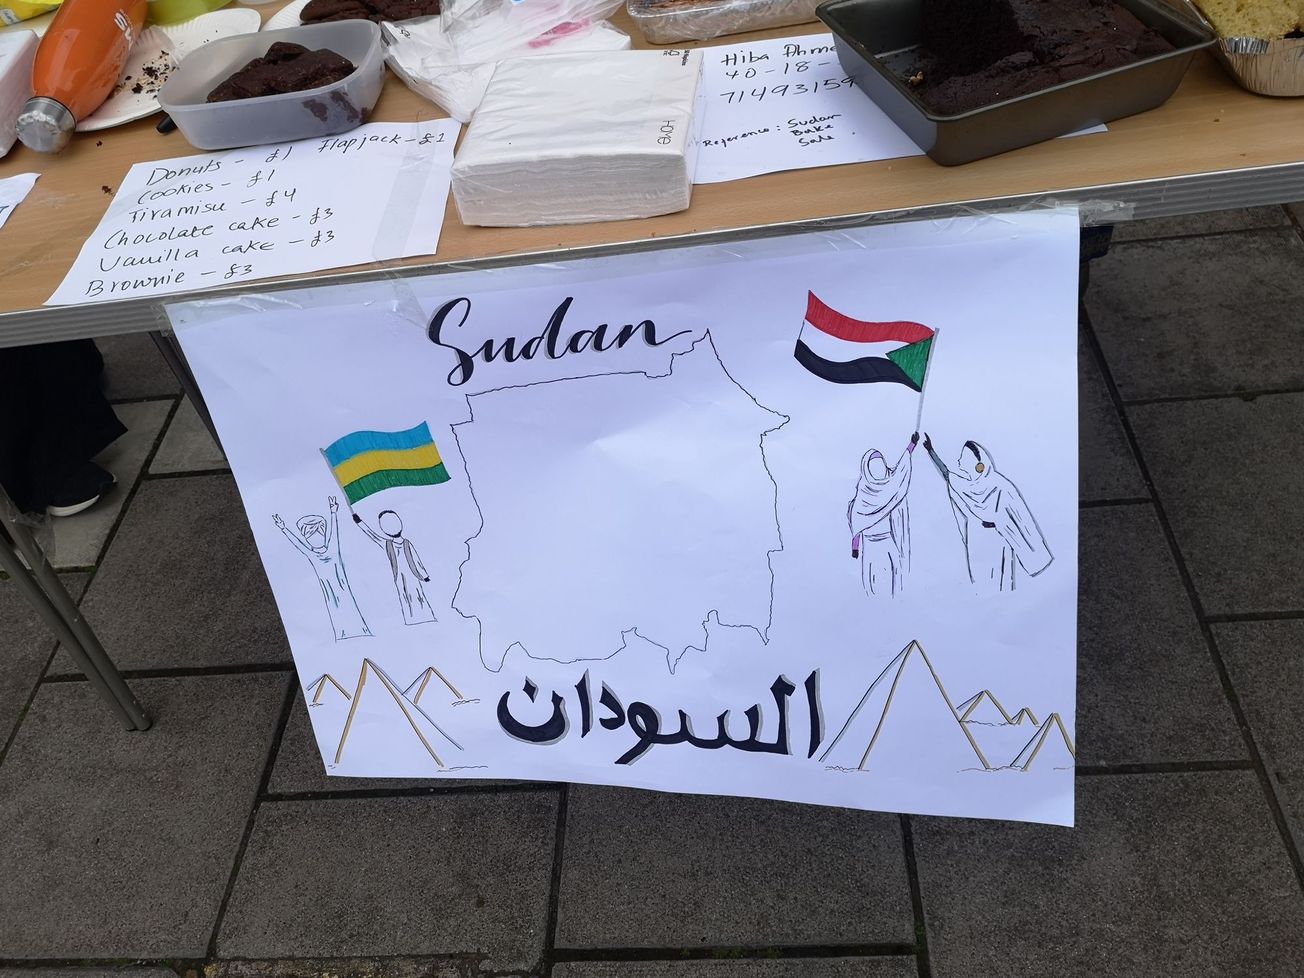 Donuts - £1 Flapjack - £1
Cookies - £1
Tiramisu - £4
Chocolate cake - £3
Vanilla cake - £3
Brownie - £3
HOME
Hiba Ahme
40-18-
71493159
Reference: Sudan
Bake
Sale
Sudan
السودان